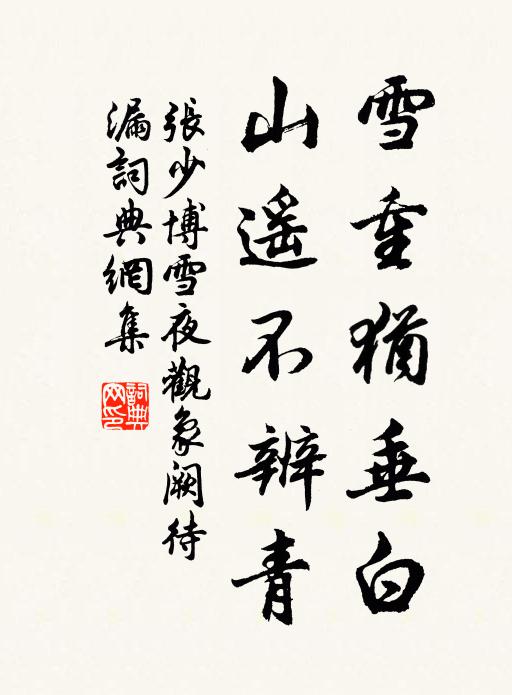 雪重猶垂白
山遥不辨青
張少博雪夜觀象阙待
漏詞典網集
詞典网印